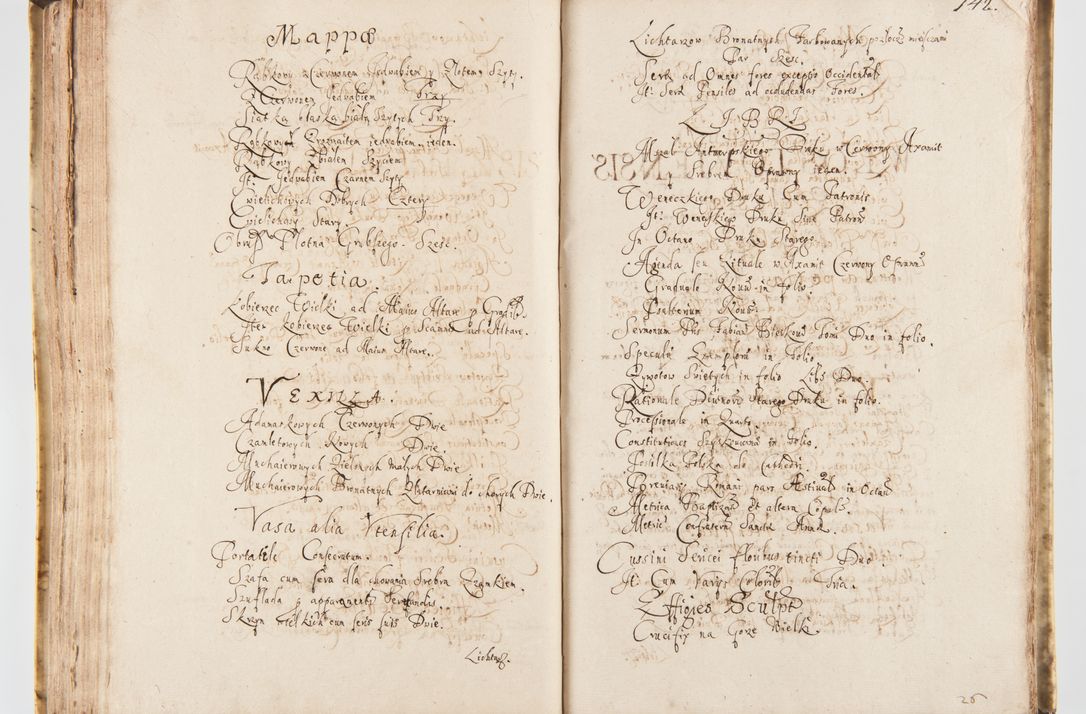 Mappæ
Rąbkowy z Czerwonem Jedwabiem y Złotem Szyty.
Z Czerwonem Jedwabiem Trzy
Siatką białą Szytych Trzy.
Jedwabiem, jeden.
Rąbkowy Białem Szyciem
It: Jedwabiem Czarnem Szyty
Cwielichowych Dobrych Cztery
Cwielichowy Stary.
Płotna Grubszego. Szesc.
Tapetia.
Kobierzec Wielki ad Maius Altare p Gradib9
Iter Kobierzec Wielki p Scamna ad Altare.
Sukno Czerwone ad Maius Altare.
VEXILLA.
Adamaskowych Czerwonych Dwie
Czamletowych Nowych Dwie.
Muchaierowych Zielonych Małych Dwie
Muchaierowych Bronatnych do chorych Dwie.
Vasa alia Vtensilia.
Portatile Consecratum.
Szafa cum sera dla chowania Srebra Zamkiem.
Szuflada p apparamentis Servandis.
Skrzyn Wielkich cum seris suis Dwie.
Lichtarz.
142.
Lichtarzow Bronatnych Farbowanych pozłoc: miejscami
Par Szesc.
Seræ ad Omnes fores excepto Occidentali
It: Seræ Pensiles ad occludendas Fores.
LIBRI
Mszał Antwerpskiego Druku w Czerwony Axamit
Srebrem Oprawny ieden.
Weneczkiego Druku Cum Patronis
It: Weneckiego Druku Sine Patron:
In Octavo Druku Starego
Agenda seu Rituale w Axamit Czerwony
Graduale Nowe in folio.
Psalterium Nowe.
Sermonum Fabiani Birkowi Tomi Duo in folio.
Speculum Exemplorum in Folio
Zywotow Swiętych in folio Duo.
Rationale Divinorum Starego Druku in folio
Processionale in Quarto.
Constitutiones in folio.
Postilka Polska do Cathedry.
Breviarium Romani pars Æstivalis in Octavo
Metrica Baptizatorum Et altera Copulatorum.
Metrica Confraternitatis Sanctæ Annæ.
Cussini Sericei floribus tincti Duo.
It: Cum varijs coloribus Tria.
Effigies Sculptæ
Crucifix na Gorze Wielki.
26